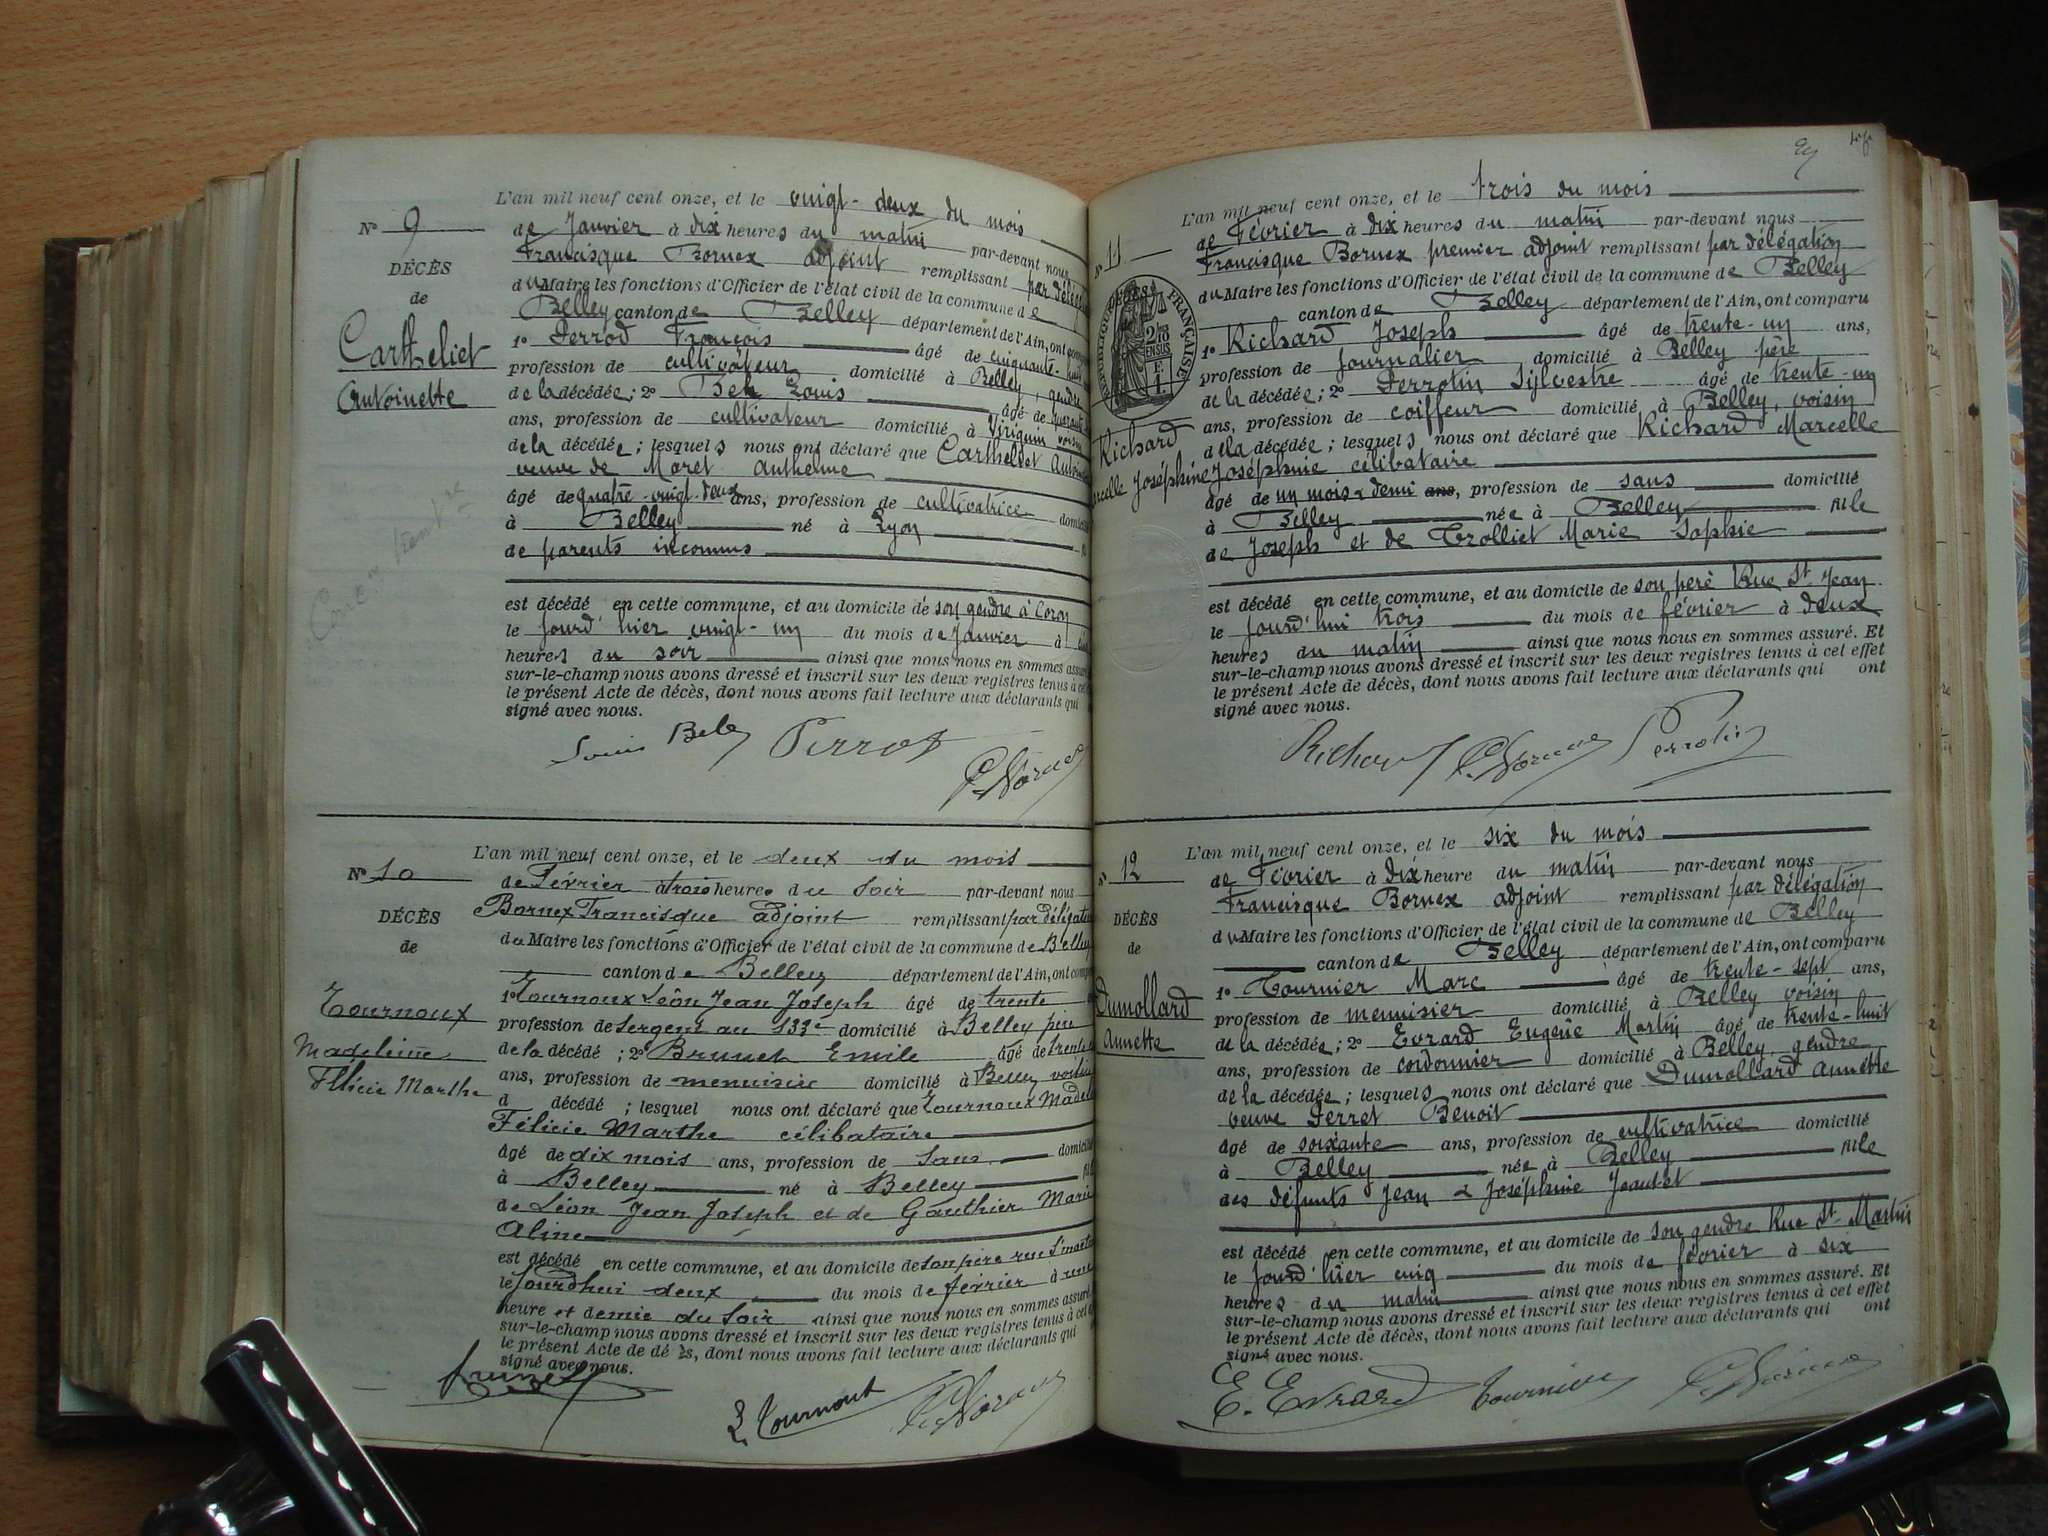 L'an mil neuf cent onze, et le vingt-deux du mois
N° 9
de Janvier à dix heures du matin par-devant nous
Francisque Bornex adjoint remplissant par délég
DÉCÈS
de
du Maire les fonctions d'Officier de l'état civil de la commune de
Belley canton de Belley département de l'Ain, ont comp
Carthelict
Antoinette
1° Perrod François âgé de cinquante-huit
profession de cultivateur domicilié à Belley, gendre
de la décédée; 2° Bel Louis âgé de
ans, profession de cultivateur domicilié à Virignin voisin
de la décédée; lesquels nous ont déclaré que
veuve de Moret Anthelme
âgé de quatre-vingt-deux ans, profession de cultivatrice domici
à Belley né à Lyon
de parents inconnus
est décédé en cette commune, et au domicile de son gendre à Coron
le jourd'hier vingt-un du mois de Janvier à
heures du soir ainsi que nous nous en sommes assu
sur-le-champ nous avons dressé et inscrit sur les deux registres tenus à ce
le présent Acte de décès, dont nous avons fait lecture aux déclarants qui
signé avec nous.
Louis Bel Perrod
L'an mil neuf cent onze, et le deux du mois
N° 10
de Février à trois heures du soir par-devant nous
Bornex Francisque adjoint remplissant par délégati
DÉCÈS
de
du Maire les fonctions d'Officier de l'état civil de la commune de Belley
canton de Belley département de l'Ain, ont comp
Tournoux
Madeleine
Félicie Marthe
1° Tournoux Léon Jean Joseph âgé de trente
profession de Sergent au 133e domicilié à Belley père
de la décédé; 2° Brunet Emile âgé de trente
ans, profession de menuisier domicilié à Belley voisin
d décédé; lesquel nous ont déclaré que Tournoux Madele
Félicie Marthe célibataire
âgé de dix mois ans, profession de sans domicilié
à Belley né à Belley fil
de Léon Jean Joseph et de Gauthier Marie
Aline
est décédé en cette commune, et au domicile de son père rue St martin
le Jourdhui deux du mois de février à une
heure et demie du Soir ainsi que nous nous en sommes assuré
sur-le-champ nous avons dressé et inscrit sur les deux registres tenus à cet
le présent Acte de décès, dont nous avons fait lecture aux déclarants qui
signé avec nous.
Brunet
L. Tournoux
L'an mil neuf cent onze, et le trois du mois
N° 11
de Février à dix heures du matin par-devant nous
Francisque Bornex premier adjoint remplissant par délégation
du Maire les fonctions d'Officier de l'état civil de la commune de Belley
canton de Belley département de l'Ain, ont comparu
RÉPUBLIQUE FRANÇAISE
1° Richard Joseph âgé de trente-un ans,
profession de journalier domicilié à Belley père
de la décédée; 2° Perrotin Sylvestre âgé de trente-un
ans, profession de coiffeur domicilié à Belley, voisin
de la décédée; lesquels nous ont déclaré que Richard Marcelle
Richard
Marcelle Joséphine
Joséphine célibataire
âgé de un mois & demi ans, profession de sans domicilié
à Belley née à Belley fille
de Joseph et de Trolliet Marie Sophie
est décédé en cette commune, et au domicile de son père Rue St Jean
le jourd'hui trois du mois de février à deux
heures du matin ainsi que nous nous en sommes assuré. Et
sur-le-champ nous avons dressé et inscrit sur les deux registres tenus à cet effet
le présent Acte de décès, dont nous avons fait lecture aux déclarants qui ont
signé avec nous.
Richard Perrotin
L'an mil neuf cent onze, et le six du mois
N° 12
de Février à dix heure du matin par-devant nous
Francisque Bornex adjoint remplissant par délégation
DÉCÈS
de
du Maire les fonctions d'Officier de l'état civil de la commune de Belley
canton de Belley département de l'Ain, ont comparu
Dumollard
Annette
1° Tournier Marc âgé de trente-sept ans,
profession de menuisier domicilié à Belley voisin
de la décédée; 2° Evrard Eugène Martin âgé de trente-huit
ans, profession de cordonnier domicilié à Belley, gendre
de la décédée; lesquels nous ont déclaré que Dumollard Annette
veuve Perret Benoit
âgé de soixante ans, profession de cultivatrice domicilié
à Belley née à Belley fille
des défunts Jean & Joséphine Jeautet
est décédé en cette commune, et au domicile de son gendre Rue St Martin
le jourd'hier cinq du mois de février à six
heures du matin ainsi que nous nous en sommes assuré. Et
sur-le-champ nous avons dressé et inscrit sur les deux registres tenus à cet effet
le présent Acte de décès, dont nous avons fait lecture aux déclarants qui ont
signé avec nous.
E. Evrard Tournier